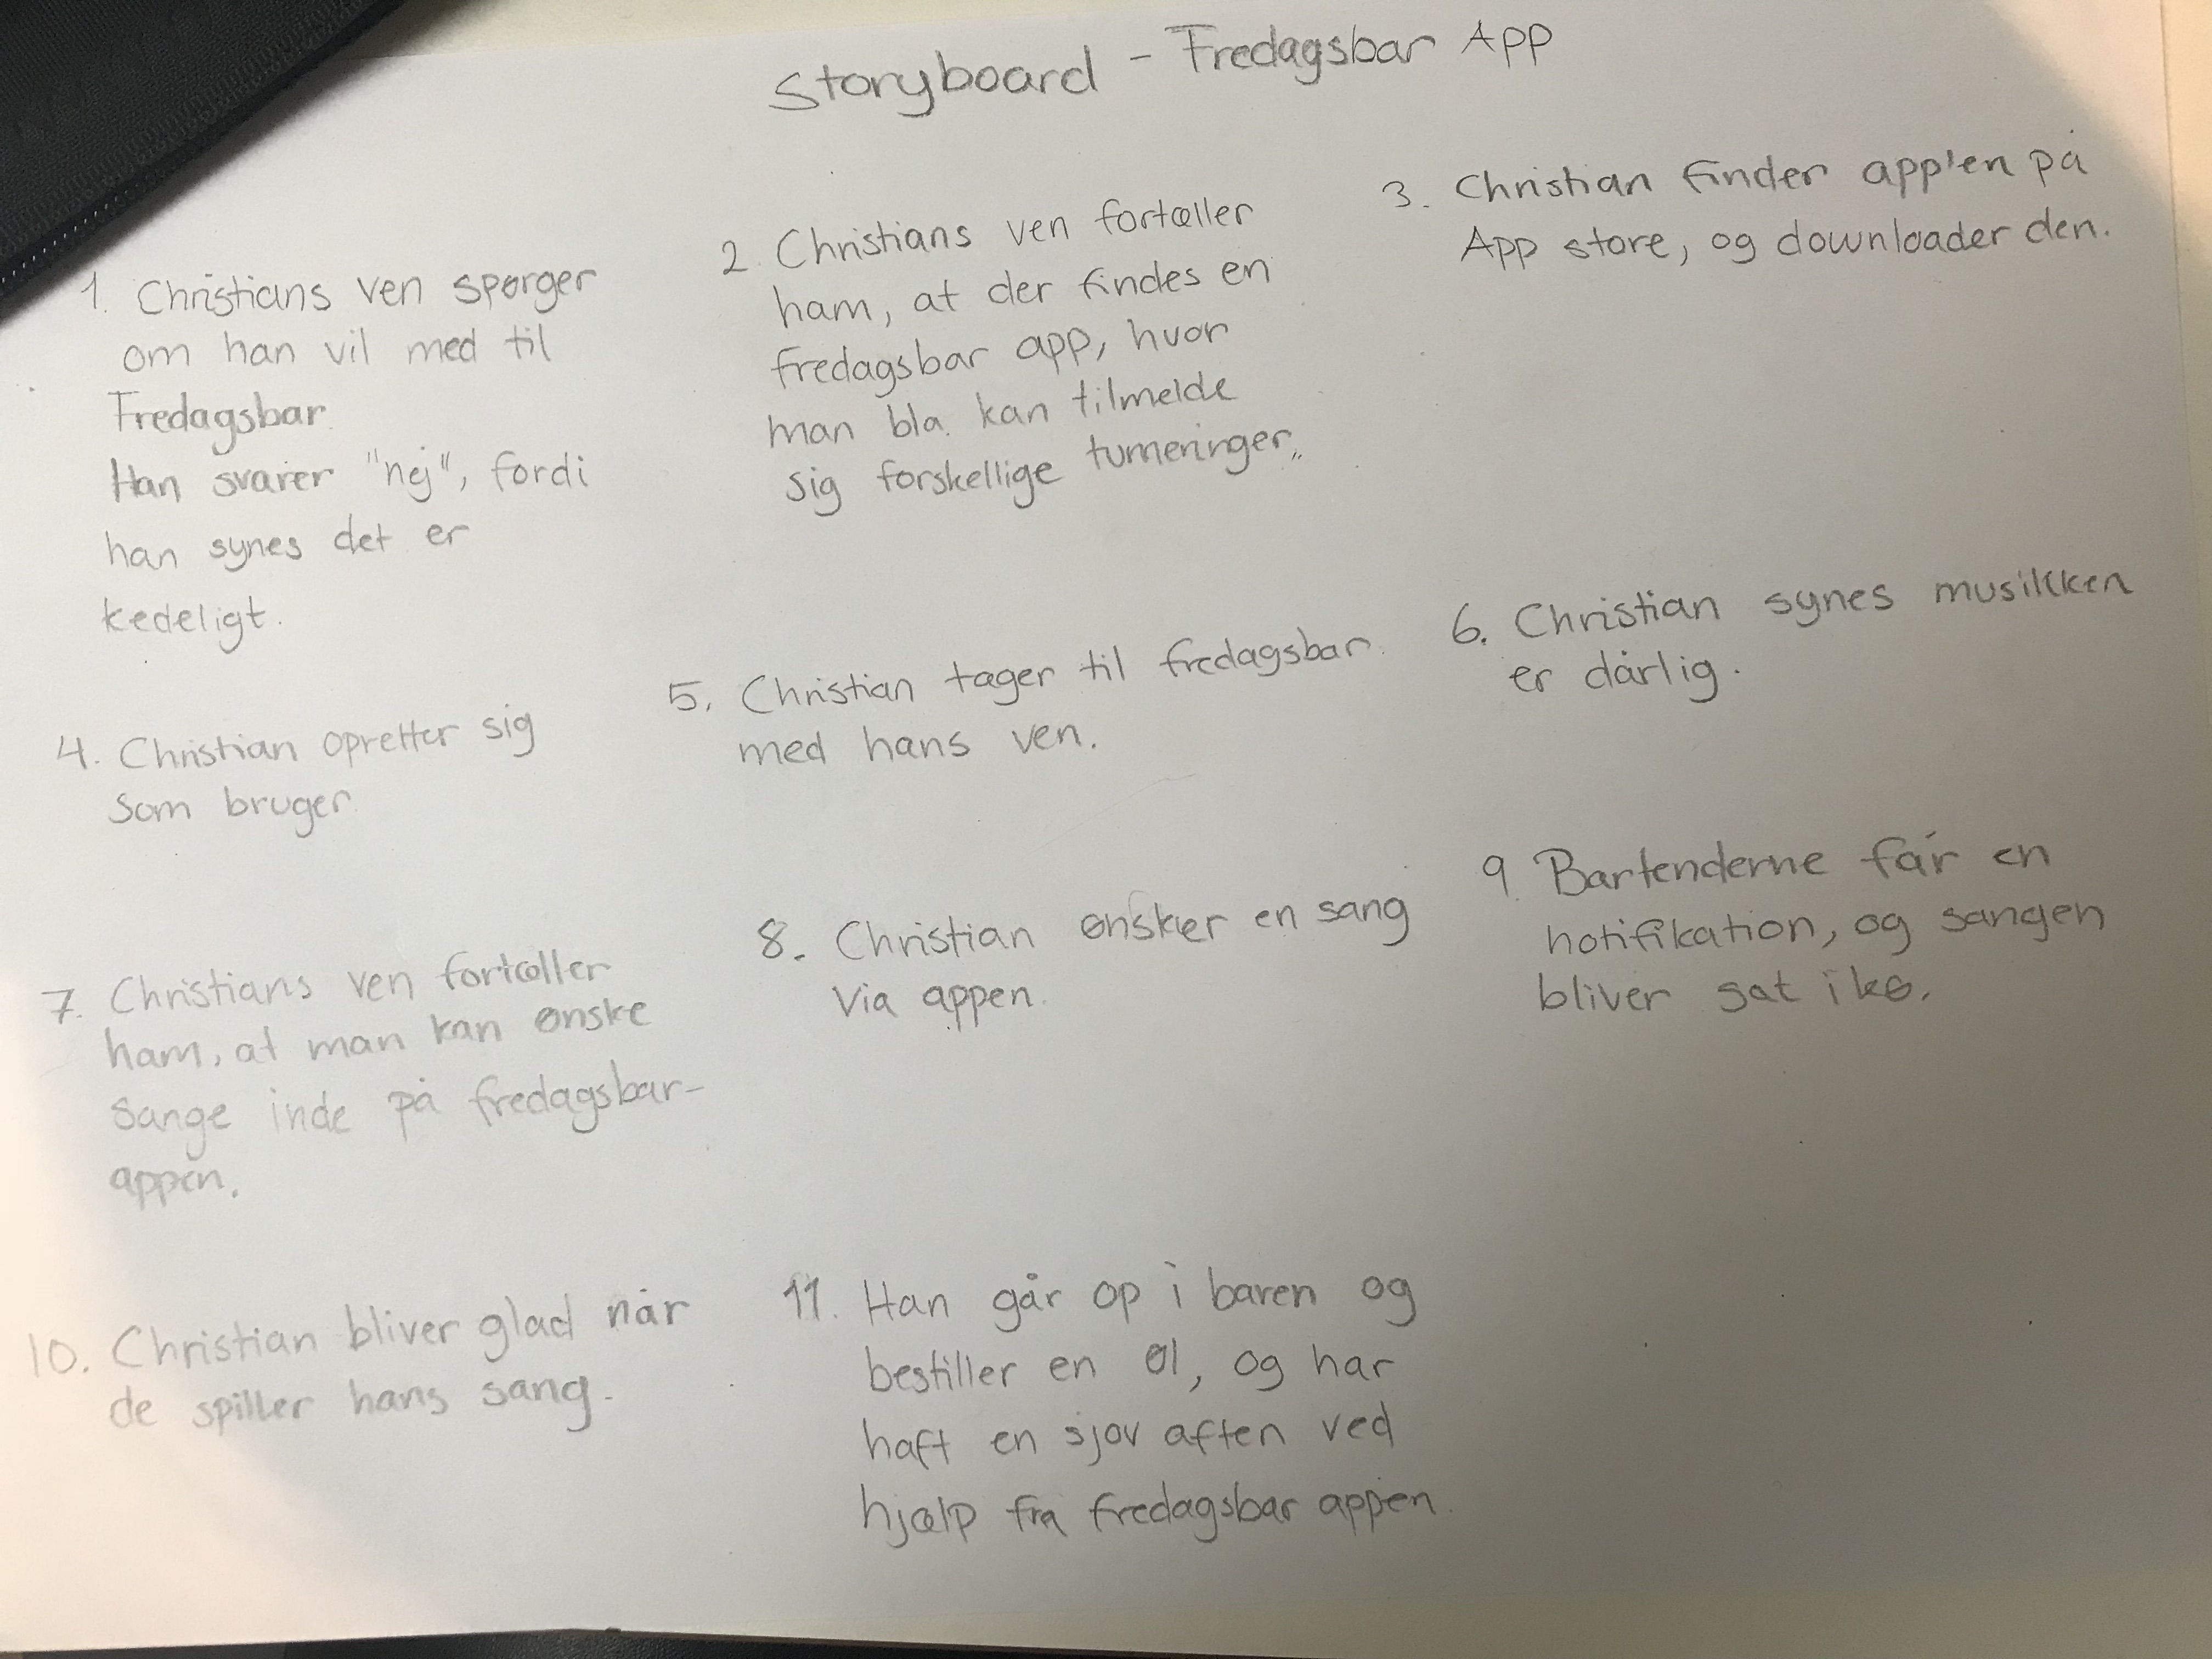 Storyboard - Fredagsbar App
1. Christians ven spørger
om han vil med til
Fredagsbar.
Han svarer "nej", fordi
han synes det er
kedeligt.
2. Christians ven fortæller
ham, at der findes en
fredagsbar app, hvor
man bla. kan tilmelde
sig forskellige turneringer.
3. Christian finder app'en på
App store, og downloader den.
4. Christian opretter sig
som bruger.
5. Christian tager til fredagsbar
med hans ven.
6. Christian synes musikken
er dårlig.
7. Christians ven fortæller
ham, at man kan ønske
sange inde på fredagsbar-
appen.
8. Christian ønsker en sang
via appen.
9. Bartenderne får en
notifikation, og sangen
bliver sat i kø.
10. Christian bliver glad når
de spiller hans sang.
11. Han går op i baren og
bestiller en øl, og har
haft en sjov aften ved
hjælp fra fredagsbar appen.